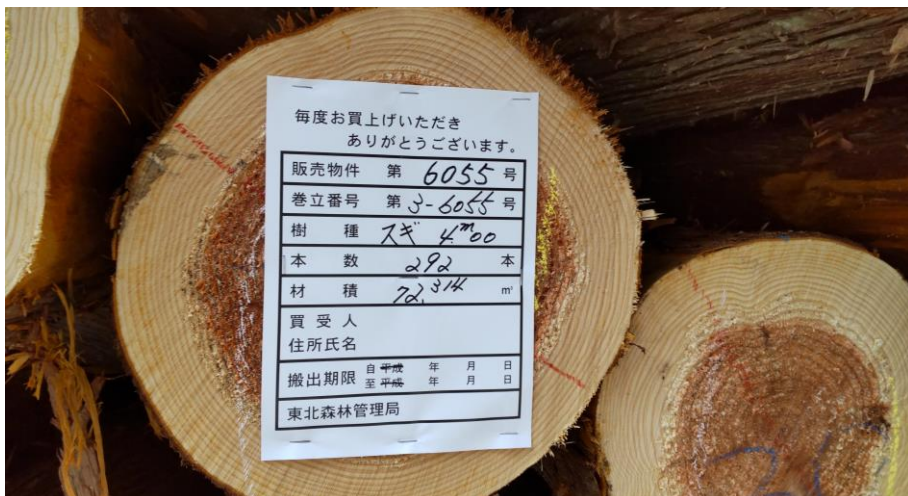 毎度お買上げいただき
ありがとうございます。
販売物件 第 6055 号
巻立番号 第 3-6055 号
樹種 スギ 4.ᵐ00
本数 292 本
材積 72.314 m³
買受人
住所氏名
搬出期限 自 平成 年 月 日
至 平成 年 月 日
東北森林管理局